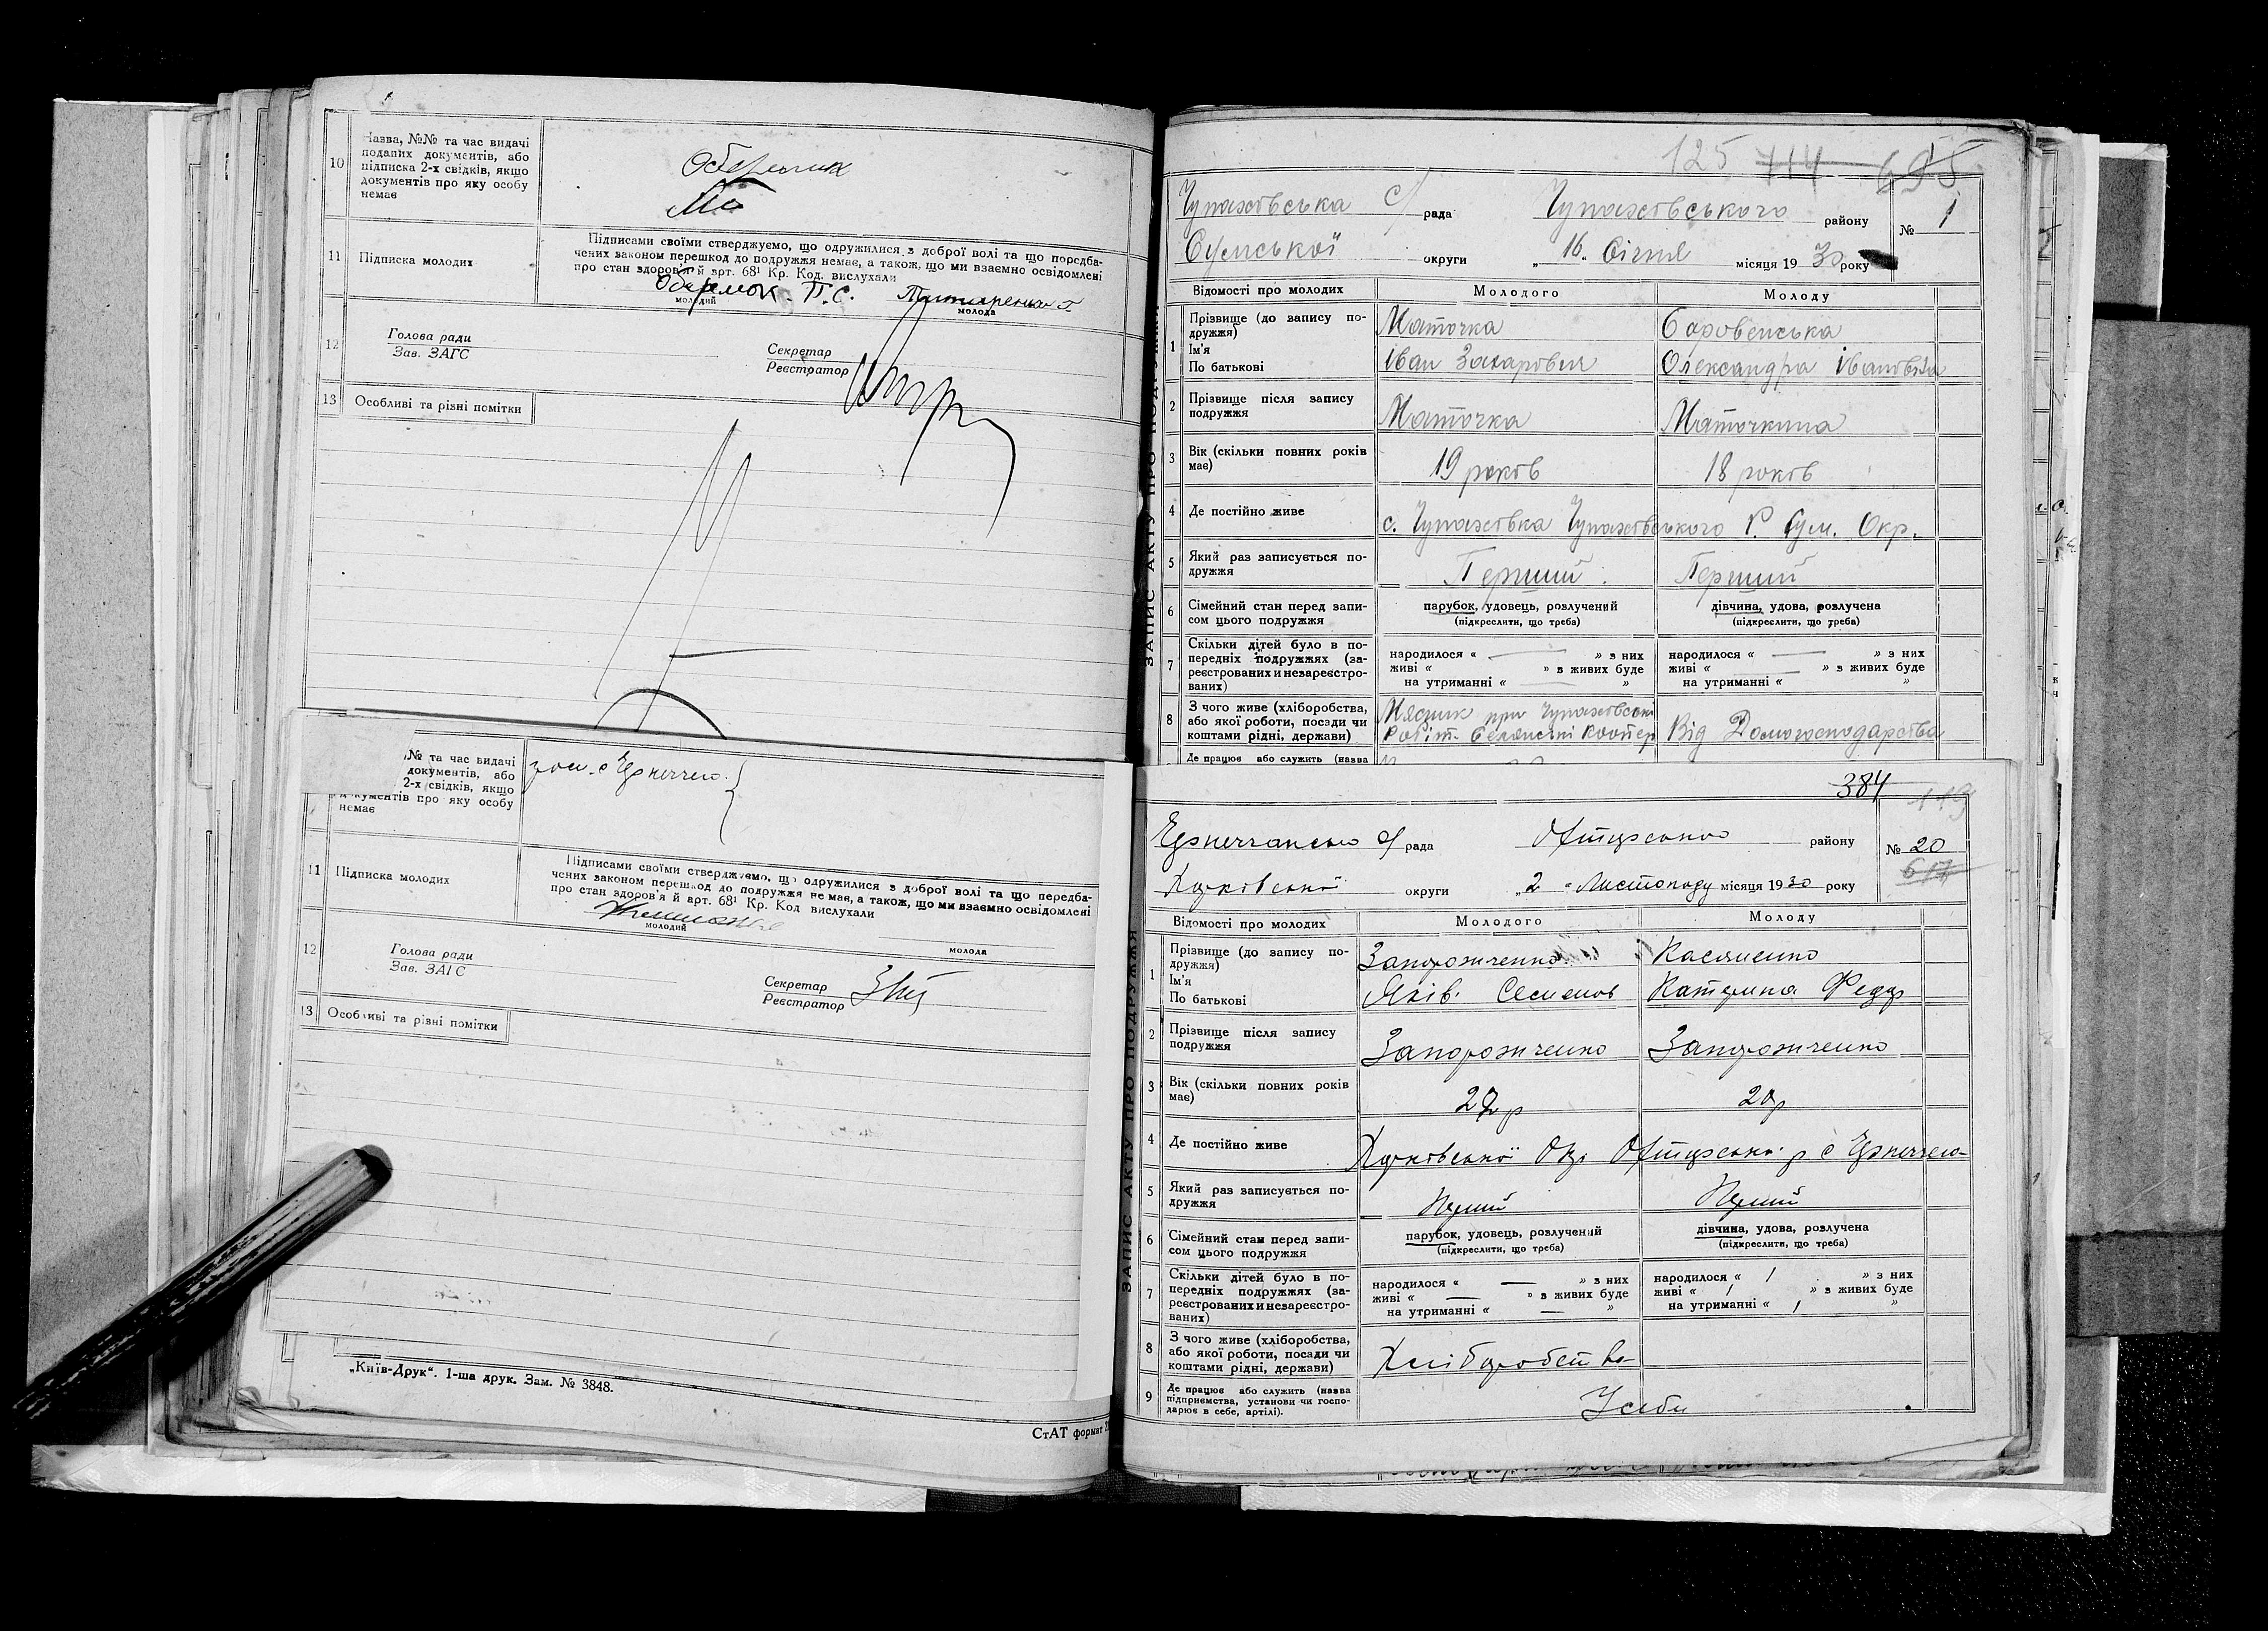 10
Назва, №№ та час видачі
поданих документів, або
підписка 2-х свідків, якщо
документів про яку особу
немає
11
Підписка молодих
Підписами своїми стверджуємо, що одружилися з доброї волі та що передба-
чених законом перешкод до подружжя немає, а також, що ми взаємно освідомлені
про стан здоров'я й арт. 68¹ Кр. Код. вислухали
молодий
молода
12
Голова ради
Зав. ЗАГС
Секретар
Реєстратор
13
Особливі та різні помітки
№ та час видачі
документів, або
2-х свідків, якщо
документів про яку особу
немає
11
Підписка молодих
Підписами своїми стверджуємо, що одружилися з доброї волі та що передба-
чених законом перешкод до подружжя немає, а також, що ми взаємно освідомлені
про стан здоров'я й арт. 68¹ Кр. Код вислухали
молодий
молода
12
Голова ради
Зав. ЗАГС
Секретар
Реєстратор
13
Особливі та різні помітки
„Київ-Друк“. 1-ша друк. Зам. № 3848.
СтАТ формат
125 714 695
ЗАПИС АКТУ ПРО ПОДРУЖЖЯ
Чупахівська с/рада Чупахівського району № 1
Сумської округи „16“ Січня місяця 1930 року
Відомості про молодих Молодого Молоду
1
Прізвище (до запису по-
дружжя) Маточка Боровенська
Ім'я
По батькові Іван Захарович Олександра Івановна
2
Прізвище після запису
подружжя Маточка Маточкина
3
Вік (скільки повних років
має) 19 років 18 років
4
Де постійно живе с. Чупахівка Чупахівського Р. Сум. Окр.
5
Який раз записується по-
дружжя Перший Перший
6
Сімейний стан перед запи-
сом цього подружжя
парубок, удовець, розлучений
(підкреслити, що треба)
дівчина, удова, розлучена
(підкреслити, що треба)
7
Скільки дітей було в по-
передніх подружжях (за-
реєстрованих и незареєстро-
ваних)
народилося « — » з них
живі « » в живих буде
на утриманні « — »
народилося « — » з них
живі « — » з живих буде
на утриманні « »
8
З чого живе (хліборобства,
або якої роботи, посади чи
коштами рідні, держави)
при Чупахівські
Від Домогосподарства
Де працює або служить (назва
384
ЗАПИС АКТУ ПРО ПОДРУЖЖЯ
рада району № 20
617
Харківської округи „2“ Листопаду місяця 1930 року
Відомості про молодих Молодого Молоду
1
Прізвище (до запису по-
дружжя) Запорожченко Касяненко
Ім'я
По батькові Яків Семенов Катерина Федор
2
Прізвище після запису
подружжя Запорожченко Запорожченко
3
Вік (скільки повних років
має) 20р
4
Де постійно живе Харківської Окр.
5
Який раз записується по-
дружжя Перший Перший
6
Сімейний стан перед запи-
сом цього подружжя
парубок, удовець, розлучений
(підкреслити, що треба)
дівчина, удова, розлучена
(підкреслити, що треба)
7
Скільки дітей було в по-
передніх подружжях (за-
реєстрованих и незареєстро-
ваних)
народилося « — » з них
живі « — » в живих буде
на утриманні « — »
народилося « / » з них
живі « / » з живих буде
на утриманні « / »
8
З чого живе (хліборобства,
або якої роботи, посади чи
коштами рідні, держави) Хліборобство
9
Де працює або служить (назва
підприємства, установи чи госпо-
дарює в себе, артілі). У себе